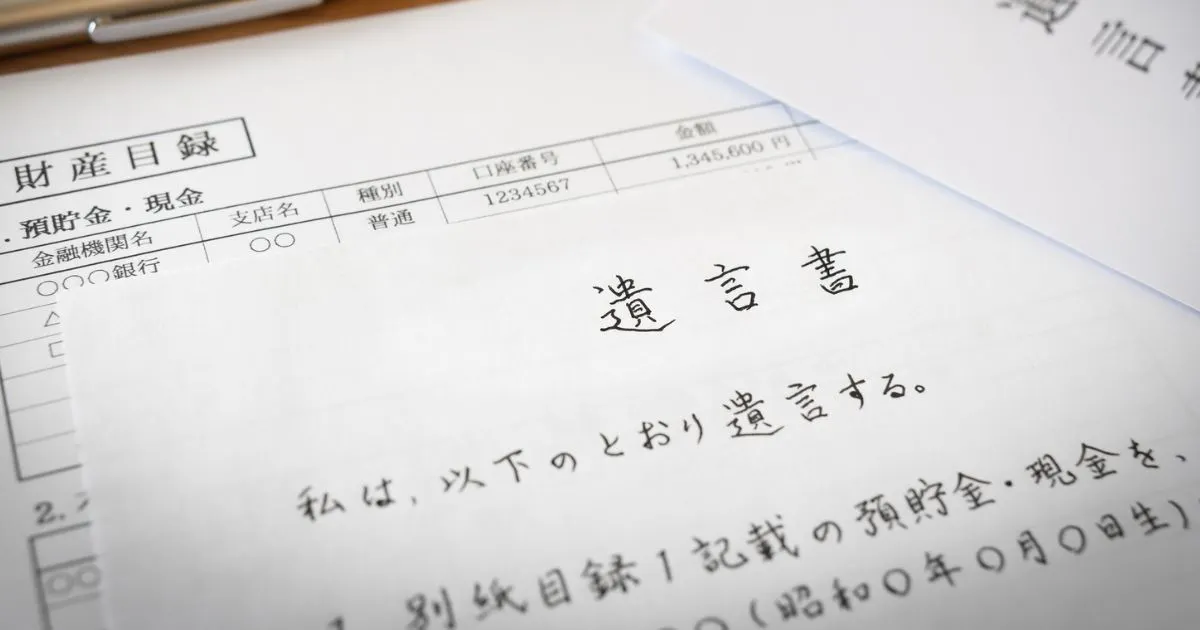 財産目録
預貯金・現金
金融機関名 支店名 種別 口座番号 金額
○○○銀行 ○○ 普通 1234567 1,345,600 円
2.
○○
遺言
遺言書
私は、以下のとおり遺言する。
別紙目録1記載の預貯金・現金を、
(昭和○年○月○日生)